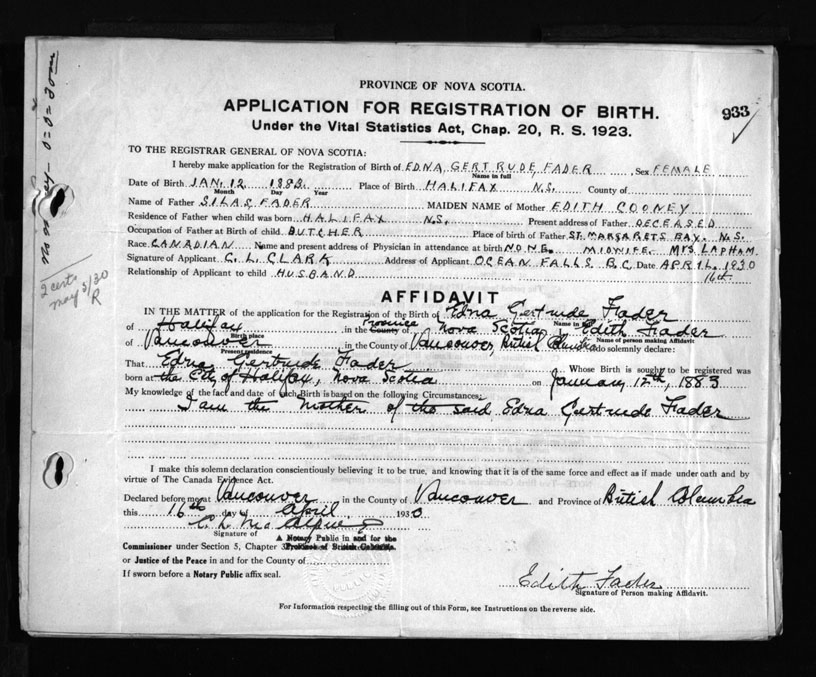 PROVINCE OF NOVA SCOTIA.
APPLICATION FOR REGISTRATION OF BIRTH.
933
Under the Vital Statistics Act, Chap. 20, R. S. 1923.
TO THE REGISTRAR GENERAL OF NOVA SCOTIA:
I hereby make application for the Registration of Birth of EDNA GERTRUDE FADER Sex FEMALE
Name in full
Date of Birth JAN. 12 1883. Place of Birth HALIFAX N.S. County of
Month Day Year
Name of Father SILAS FADER MAIDEN NAME of Mother EDITH COONEY
Residence of Father when child was born HALIFAX N.S. Present address of Father DECEASED
Occupation of Father at Birth of child BUTCHER Place of birth of Father ST. MARGARETS BAY. N.S.
Race CANADIAN Name and present address of Physician in attendance at birth NONE. MIDWIFE MRS LAPHAM.
Signature of Applicant C. L. CLARK Address of Applicant OCEAN FALLS B.C. Date APRIL 1930
16th
Relationship of Applicant to child HUSBAND
2 certs
May 5/30
R
AFFIDAVIT
IN THE MATTER of the application for the Registration of the Birth of Edna Gertrude Fader
Name in full
of Halifax in the County of Province Nova Scotia I Edith Fader
Birth place Name of person making Affidavit
of Vancouver in the County of Vancouver, British Columbia do solemnly declare:
Present residence
That Edna Gertrude Fader Whose Birth is sought to be registered was
born at the City of Halifax, Nova Scotia on January 12th, 1883
My knowledge of the fact and date of such Birth is based on the following Circumstances:
I am the Mother of the said Edna Gertrude Fader
I make this solemn declaration conscientiously believing it to be true, and knowing that it is of the same force and effect as if made under oath and by
virtue of The Canada Evidence Act.
Declared before me at Vancouver in the County of Vancouver and Province of British Columbia
this 16th day of April 1930
Signature of
A Notary Public in and for the
Commissioner under Section 5, Chapter 3 Province of British Columbia.
or Justice of the Peace in and for the County of
If sworn before a Notary Public affix seal.
Edith Fader
Signature of Person making Affidavit.
For Information respecting the filling out of this Form, see Instructions on the reverse side.